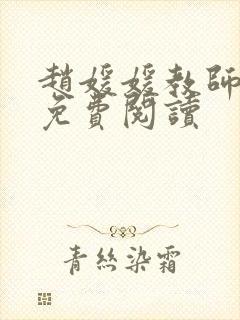 趙媛媛教師
免費閱讀
青絲染霜